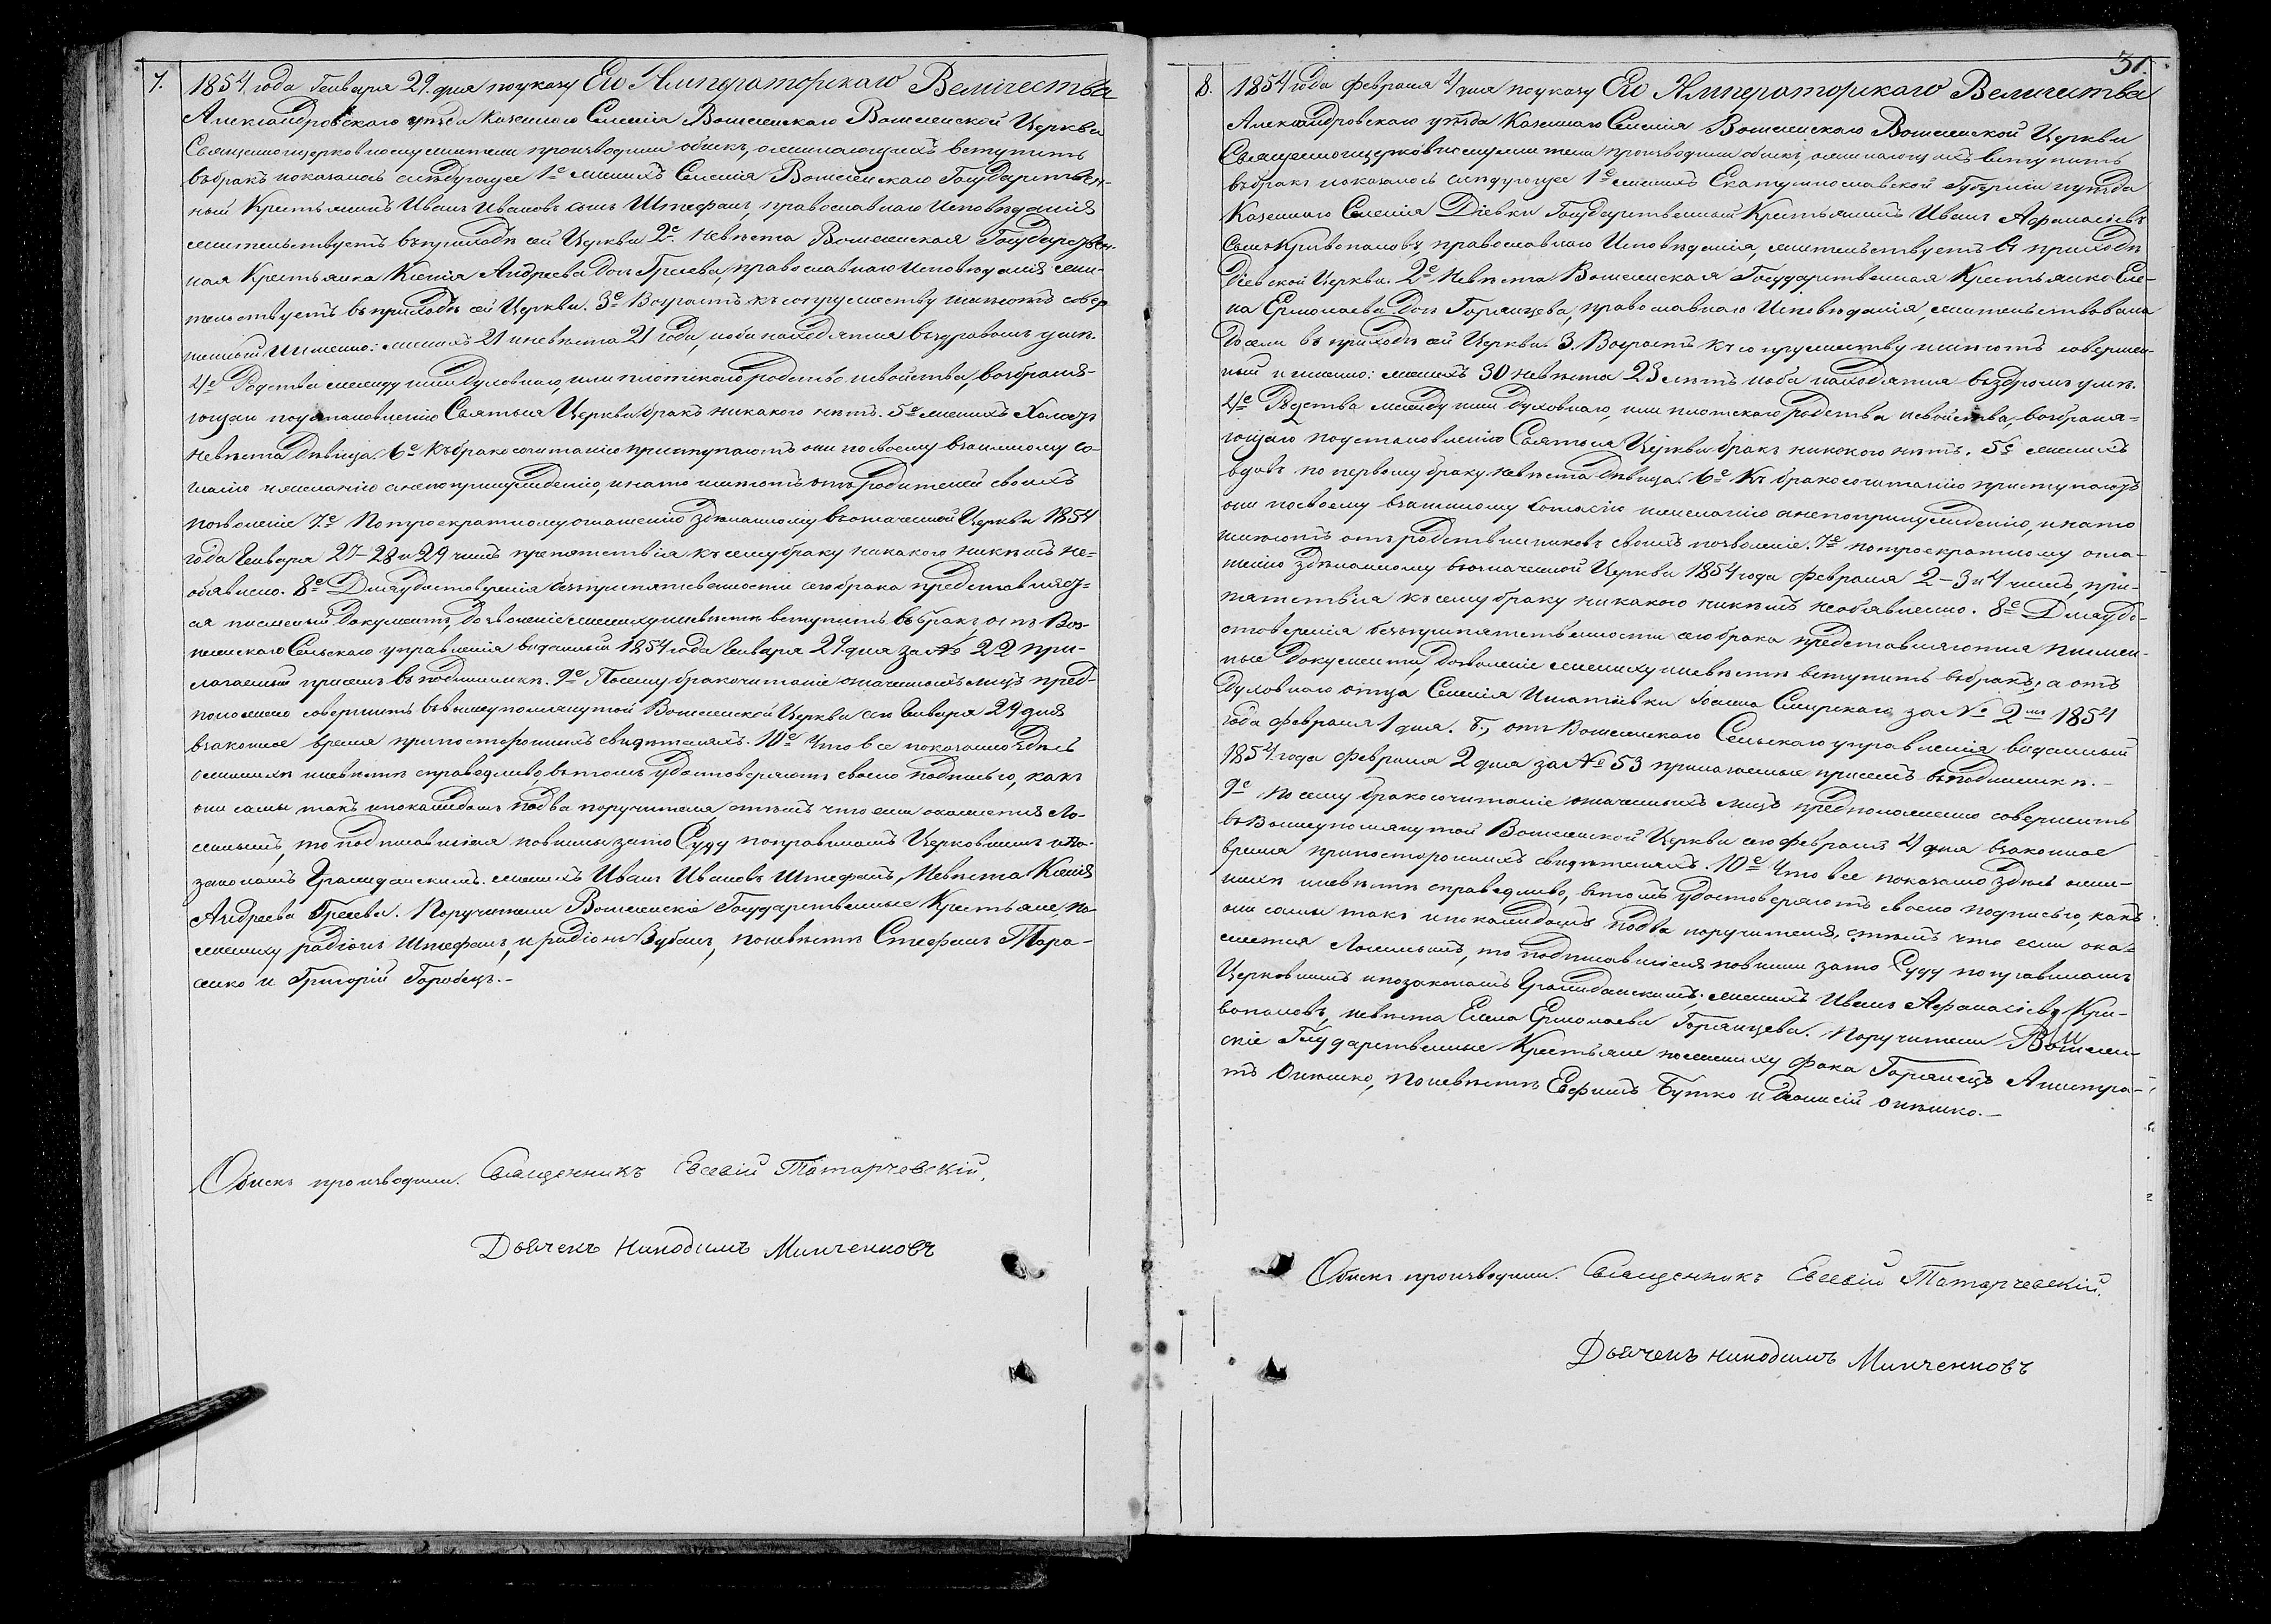 7.
1854 года Генваря 29. дня по указу Его Императорскаго Величества
Александровскаго уѣзда Казеннаго Селенія Вознесенскаго Вознесенской Церкви
Священноицерковнослужители производили обыскъ, о желающихъ вступить
въбракъ и оказалось слѣдующее 1е женихъ Селенія Вознесенскаго Государствен-
ный Крестьянинъ Иванъ Ивановъ сынъ Штефанъ, православнаго Исповѣданія
жительствуетъ въприходѣ сей Церкви 2е. Невѣста Вознесенская Государствен-
ная Крестьянка Ксенія Андреева Дочь Грекова, православнаго Исповѣданія жи-
тельствуетъ въприходѣ сей Церкви. 3е Возрастъ къ сопружеству имѣютъ совер
шенный Именно: женихъ 21 иневѣста 21 года, иоба находятся въздравомъ умѣ.
4е Родства между ими духовнаго, или плотскаго родства исвойства, возбраня-
ющаго поустановленію Святыя Церкви бракъ никакого нѣтъ. 5е женихъ Холостъ
Невѣста дѣвица. 6е Къбракосочитанію приступаютъ они посвоему взаимному со-
гласію ижеланію анепопринужденію, инато имѣютъ отъ родителей своихъ
позволеніе 7е Потроекратному оглашенію здѣланному въозначенной Церкви 1854
года Генваря 27– 28 и 29 чиселъ препятствія къ сему браку никакого никѣмъ не-
объявлено. 8е Для удостовѣренія безпрепятственности сего брака представляет-
ся писменный документъ, дозволеніе жениху иневѣстѣ вступить въбракъ, отъ Воз-
несенскаго Сельскаго управленія виданный 1854 года Генваря 29 дня за № 22 при-
лагаемый присемъ въподлинникѣ. 9е Посему бракочитаніе означенныхъ лицъ пред-
положено совершить въвышеупомянутой Вознесенской Церкви сего Генваря 29 дня
взаконное время припостороннихъ свидѣтеляхъ. 10е Что все показанно здѣсь
о женихѣ иневѣстѣ справедливо, вътомъ удостовѣряютъ своею подписью, какъ
они сами такъ ипокаждомъ подва поручителя, стѣмъ что если окажется Ло-
жнымъ, то подписавшіеся повинны зато Суду поправиламъ Церковнымъ ипо-
законамъ Гражданскимъ. женихъ Иванъ Ивановъ Штефанъ, Невѣста Ксенія
Андреева Грекова. Поручители Вознесенскіе Государственные Крестьяне, по-
жениху радіонъ Штефанъ, и радіонъ Зубанъ, поневѣстѣ Стефанъ Тара-
сенко и Григорій Горобецъ.–
Обискъ производили. Священникъ Евсевій Татарчевскій.
Дьячекъ Никодимъ Минченковъ
31.
8.
1854 года февраля 4 дня по указу Его Императорскаго Величества
Александровскаго уѣзда Казеннаго Селенія Вознесенскаго Вознесенской Церкви
Священноицерковнослужители производили обыскъ, о желающихъ вступить
въбракъ и оказалось слѣдующее 1е женихъ Екатеринославской Губерніи иуѣзда
Казеннаго Селенія Діевки Государственный Крестьянинъ Иванъ Афанасіевъ
сынъ Кривопаловъ, православнаго Исповѣданія, жительствуетъ въ приходѣ
Діевской Церкви. 2е Невѣста Вознесенская Государственная Крестьянка Еле-
на Ермолаева дочь Горянцева, православнаго Исповѣданія, жительствовала
доселѣ въ приходѣ сей Церкви. 3. Возрастъ къ сопружеству имѣютъ совершен-
ный и именно: женихъ 30 невѣста 23 лѣтъ иоба находятся въздравомъ умѣ.
4е Родства между ими духовнаго, или плотскаго родства исвойства, возбраня-
ющаго поустановленію Святыя Церкви бракъ никакого нѣтъ. 5е женихъ
вдовъ по первому браку, невѣста дѣвица. 6е Къ бракосочитанію приступаютъ
они посвоему взаимному согласію ижеланію анепопринужденію, инато
имѣютъ отъ родственниковъ своихъ позволеніе. 7е потроекратному огла-
шенію здѣланному въозначенной Церкви 1854 года февраля 2 – 3 и 4 чиселъ, пре-
пятствія къ сему браку никакого никѣмъ необъявленно. 8е Для удо-
стовѣренія безпрепятственности сего брака представляются писмен-
ные документы, дозволеніе жениху иневѣстѣ вступить въбракъ; а отъ
духовнаго отца Селенія Игнатіевки Іоанна Смирскаго за № 2мъ 1854
года февраля 1 дня. Б., отъ Вознесенскаго Сельскаго управленія виданный
1854 года февраля 2 дня за № 53 прилагаемые присемъ въподлинникѣ.–
9е по сему бракосочитаніе означенныхъ лицъ предположенно совершить
въВышеупомянутой Вознесенской Церкви сего февраля 4 дня взаконное
время припостороннихъ свидѣтеляхъ. 10е Что все показано здѣсь ожи-
нихѣ иневѣстѣ справедливо, втомъ удостовѣряютъ своею подписью, какъ
они сами такъ ипокаждомъ подва поручителя, стѣмъ что если ока-
жется Ложнымъ, то подписавшіеся повинны зато Суду поправиламъ
Церковнымъ ипозаконамъ Гражданскимъ. женихъ Иванъ Афанасіевъ Кри-
вопаловъ, невѣста Елена Ермолаева Горянцева. Поручители Вознесен-
скіе Государственные Крестьяне пожениху фока Горянецъ
поневѣстѣ Евфимъ Бутко и Діонисій
Обискъ производили. Священникъ Евсевій Татарчевскій.
Дьячекъ Никодимъ Минченковъ